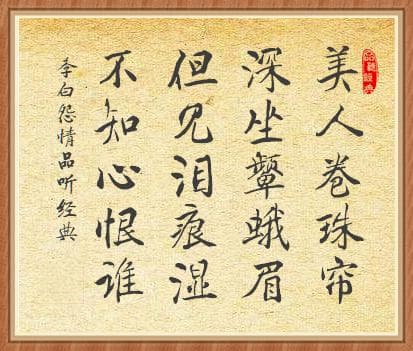 美人卷珠帘
深坐颦蛾眉
但见泪痕湿
不知心恨谁
李白怨情品听经典